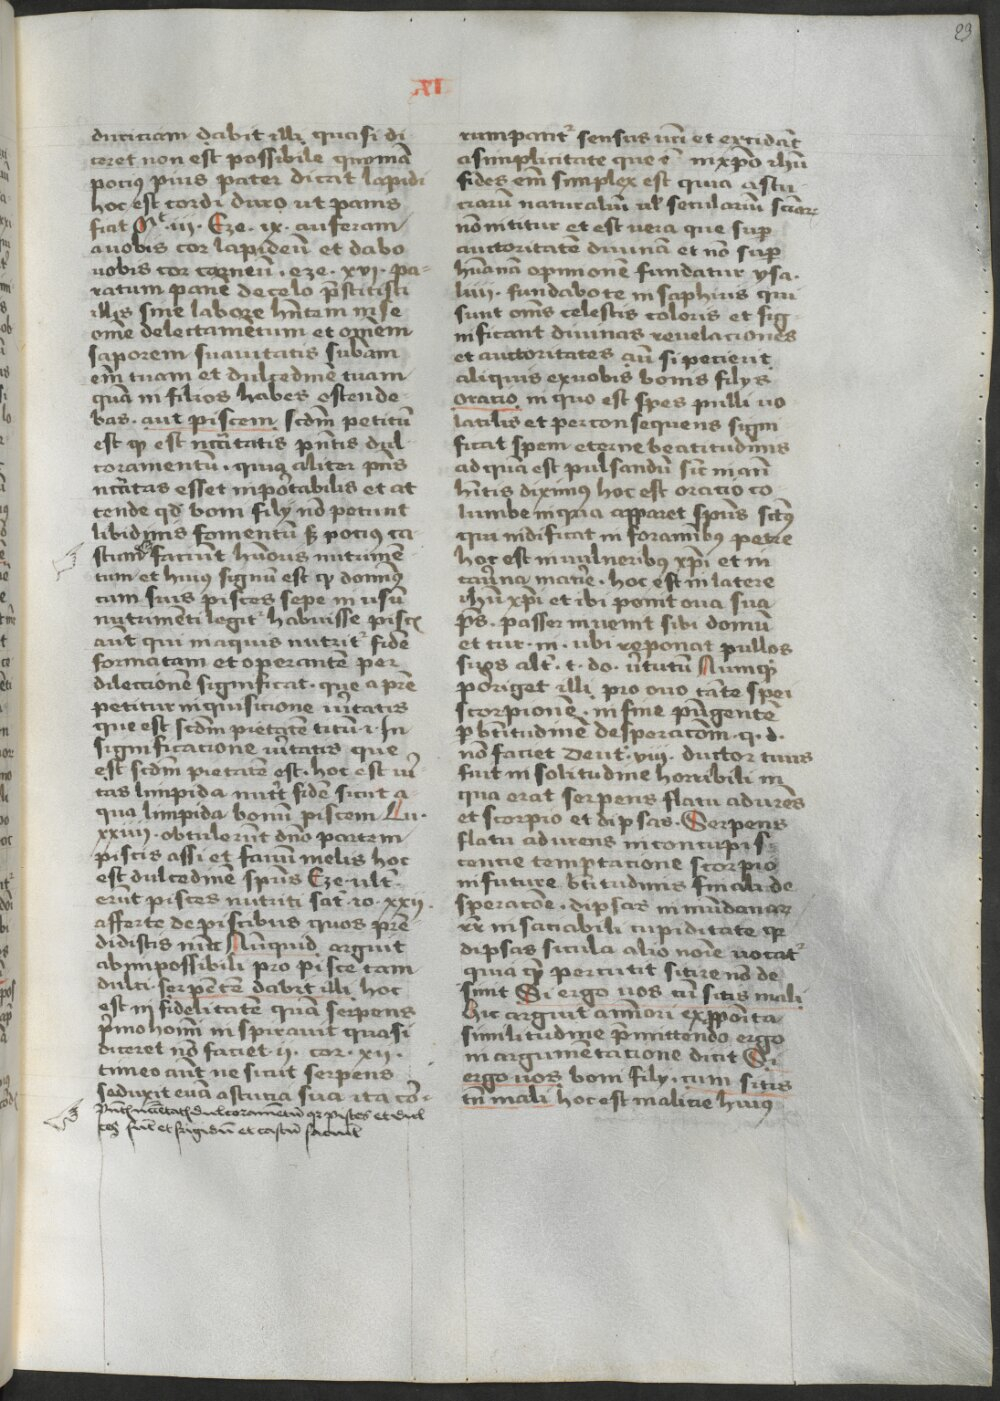 29
IX
duriciam dabit illi quasi di
ceret non est possibile quoniam
pocius pius pater dicat lapidi
hoc est cordi duro ut panis
fiat Mt iii. Eze. ix. auferam
a vobis cor lapideū et dabo
vobis cor carneū. eze. xvi. pa-
ratum panē de celo p̄stitisti
illis sine labore hn̄tem in se
omē delectamētum et om̄em
saporem suavitatis subam
em̄ tuam et dulcedinē tuam
quā in filios habes ostende-
bas. aut piscem scdm petitū
est qͥ est nc̄itatis pn̄tis dul
coramentū. quia aliter pn̄s
nc̄itas esset inportabilis et at
tende qd boni filii nō petunt
libidinis fomentū sꝫ pocius ca
stum faciunt humoris nutrimē-
tum et huius signū est qͥ dominus
cum suis pisces sepe in usū
nutrimēti legitʳ habuisse piscis
aūt qui in aquis nutritʳ fidē
formatam et operantē per
dilectionē significat. que a prē
petitur inquisicione vītatis
que est scdm pietatē titū i. In
significacione vītatis que
est scdm pietatē est. hoc est vī-
tas limpida nutrit fidē sicut a-
qua limpida bonū piscem Lu.
xxiiii. obtulerūt dn̄o partem
piscis assi et favū melis hoc
est dulcedinē spūs Eze. ult.
erūt pisces nutriti sāt. io. xxii.
afferte de piscibus quos prē
didistis nūc Nūquid arguit
ab impossibili pro pisce tam
dulci serpētē dabit illi hoc
est infidelitatē quā serpens
p̄mo homī inspiravit quasi
diceret nō faciet. ii. cor. xii.
timeo aūt ne sicut serpens
seduxit evā astucia sua ita cō-
pisces et dul
ces sūt et frigidū et castū faciūt
rumpantʳ sensus vrī et excidāt
a simplicitate que ē in xp̄o ihū
fides em̄ simplex est quia astu
ciarū naturaliū vl seculariū sciar
nō nititur et est vera que supͬ
auctoritatē divinā et nō supͬ
hūanā opinionē fundatur ysa.
liiii. fundabo te in saphiris qui
sunt om̄s celestis coloris et sig-
nificant divinas revelaciones
et auctoritates aūt si pecierit
aliquis ex vobis bonis filiis
oracio in quo est spes pulli vo
latilis et per consequens signi
ficat spem eterne beatitudinis
ad quā est pulsandū sic in an
hītis diximus hoc est oracio co
lumbe in qua apparet spūs scūs
qui nidificat in foraminibus petre
hoc est in vulneribus xp̄i et in
caverna macerie. hoc est in latere
ihū xp̄i et ibi ponit ova sua
ps. passer invenit sibi domū
et tur. ni. ubi reponat pullos
suos alt. t. do. vtutū Numqͥ
porriget illi pro ovo tāte spei
scorpionē. in fine pūgentē
p btitudinē desperacōm. q. d.
nō faciet Deut. viii. ductor tuus
fuit in solitudine horribili in
qua erat serpens flatu adurēs
et scorpio et dipsas. Serpens
flatu adurens in concupis-
centie temptacione scorpio
in future btitudinis finali de
speracōe. dipsas in mūdanar
rr insaciabili cupiditate qr
dipsas situla alio noīe vocatʳ
quia qͤ percutit sitire nō de
sinit Si ergo vos cū sitis mali
hic arguit a minori exposita
similitudine p̄mittendo ergo
in argumētacione dicit Si
ergo vos boni filii. cum sitis
tn̄ mali hoc est malicie huius